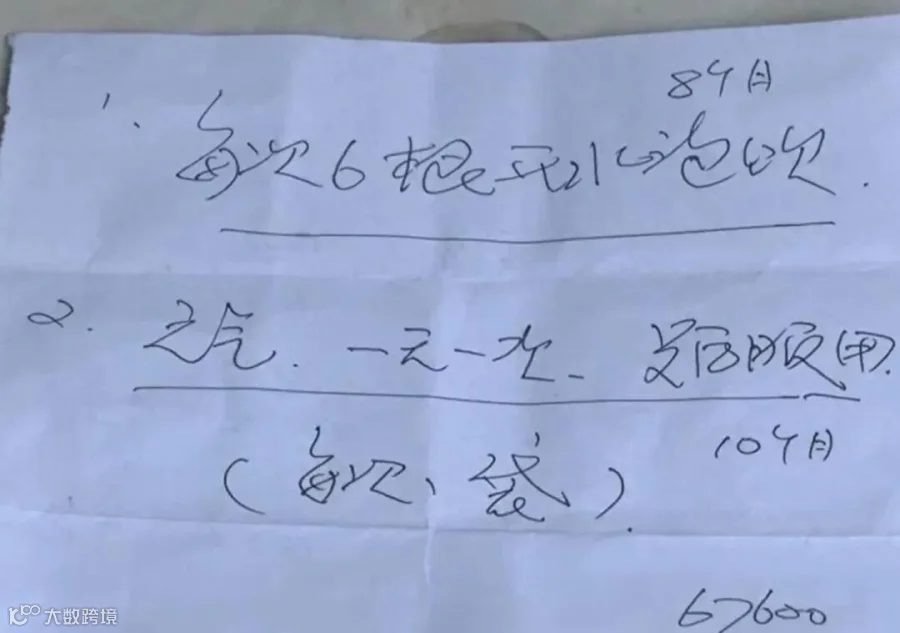 8个月
1. 每次6根开水泡饮.
2. 元气. 一天一次. 饭后服用.
10个月
(每次1袋)
67600
大数跨境